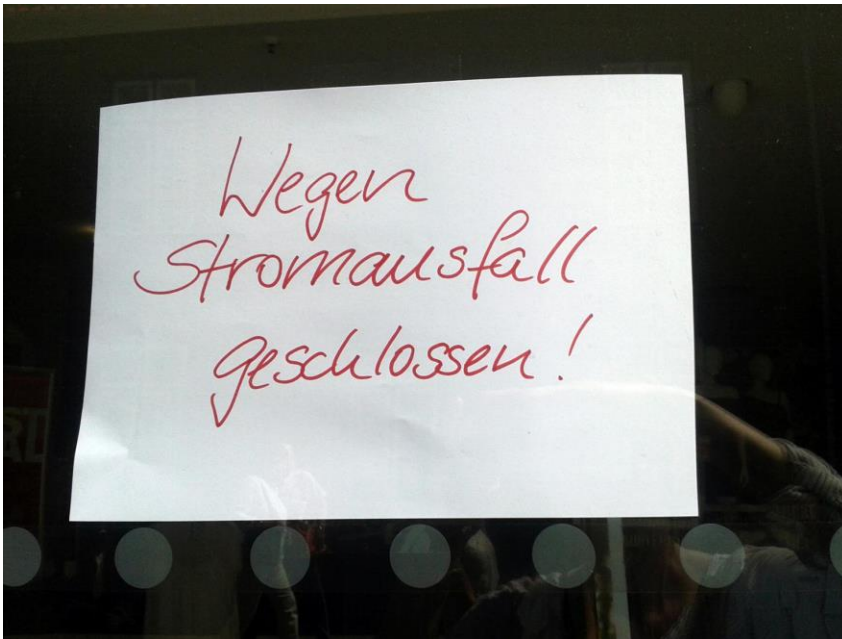 Wegen
Stromausfall
geschlossen!